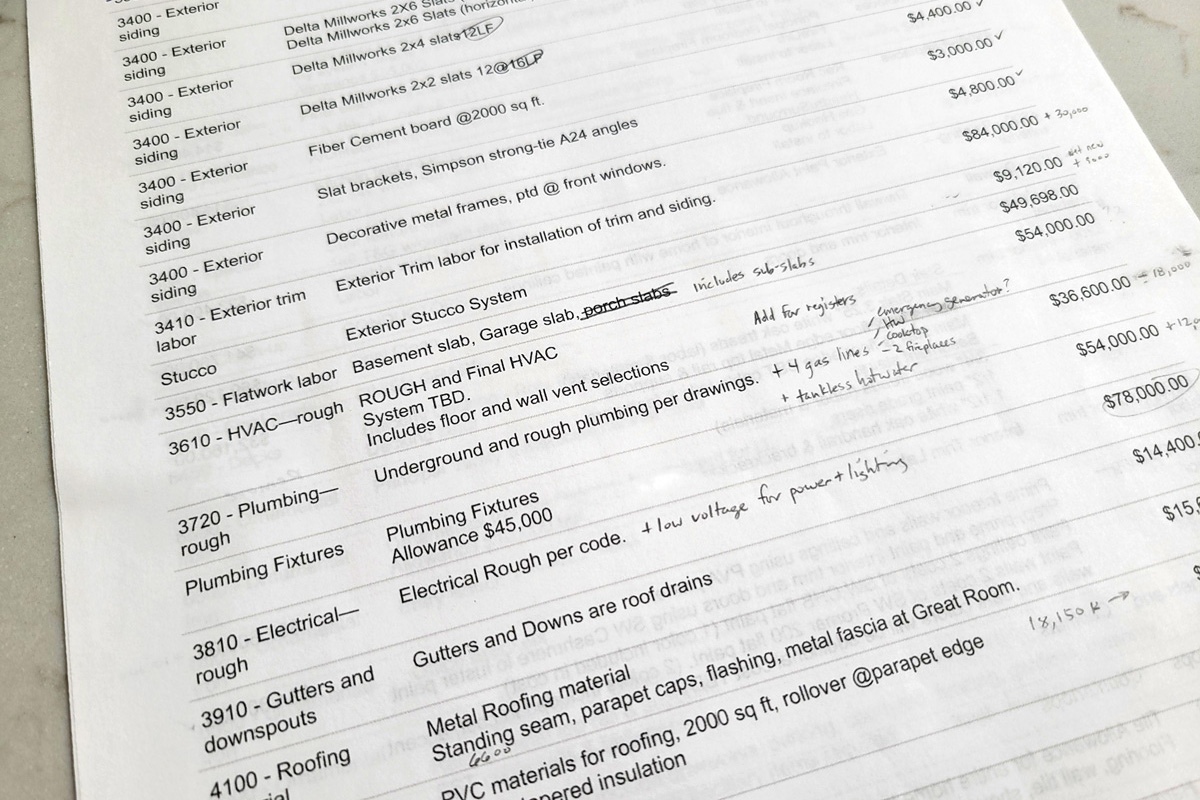 3400 - Exterior siding
Delta Millworks 2X6 Slats
Delta Millworks 2x6 Slats
3400 - Exterior siding
Delta Millworks 2x4 slats 12LF
$4,400.00 ✓
3400 - Exterior siding
Delta Millworks 2x2 slats 12@16LF
$3,000.00 ✓
3400 - Exterior siding
Fiber Cement board @2000 sq ft.
$4,800.00 ✓
3400 - Exterior siding
Slat brackets, Simpson strong-tie A24 angles
$84,000.00 + 30,000
3400 - Exterior siding
Decorative metal frames, ptd @ front windows.
$9,120.00
3410 - Exterior trim labor
Exterior Trim labor for installation of trim and siding.
$49,698.00
Stucco
Exterior Stucco System
$54,000.00
3550 - Flatwork labor
Basement slab, Garage slab, porch slabs includes sub-slabs
3610 - HVAC—rough
ROUGH and Final HVAC
System TBD.
Includes floor and wall vent selections
Add for registers
$36,600.00 18,000
3720 - Plumbing—rough
Underground and rough plumbing per drawings. + 4 gas lines
emergency generator?
HW
cooktop
- 2 fireplaces
+ tankless hotwater
$54,000.00
Plumbing Fixtures
Plumbing Fixtures
Allowance $45,000
$78,000.00
3810 - Electrical—rough
Electrical Rough per code. + low voltage for power + lighting
$14,400.
3910 - Gutters and downspouts
Gutters and Downs are roof drains
$15,
4100 - Roofing
Metal Roofing material
Standing seam, parapet caps, flashing, metal fascia at Great Room.
18,150 K →
6600
PVC materials for roofing, 2000 sq ft, rollover @parapet edge
insulation